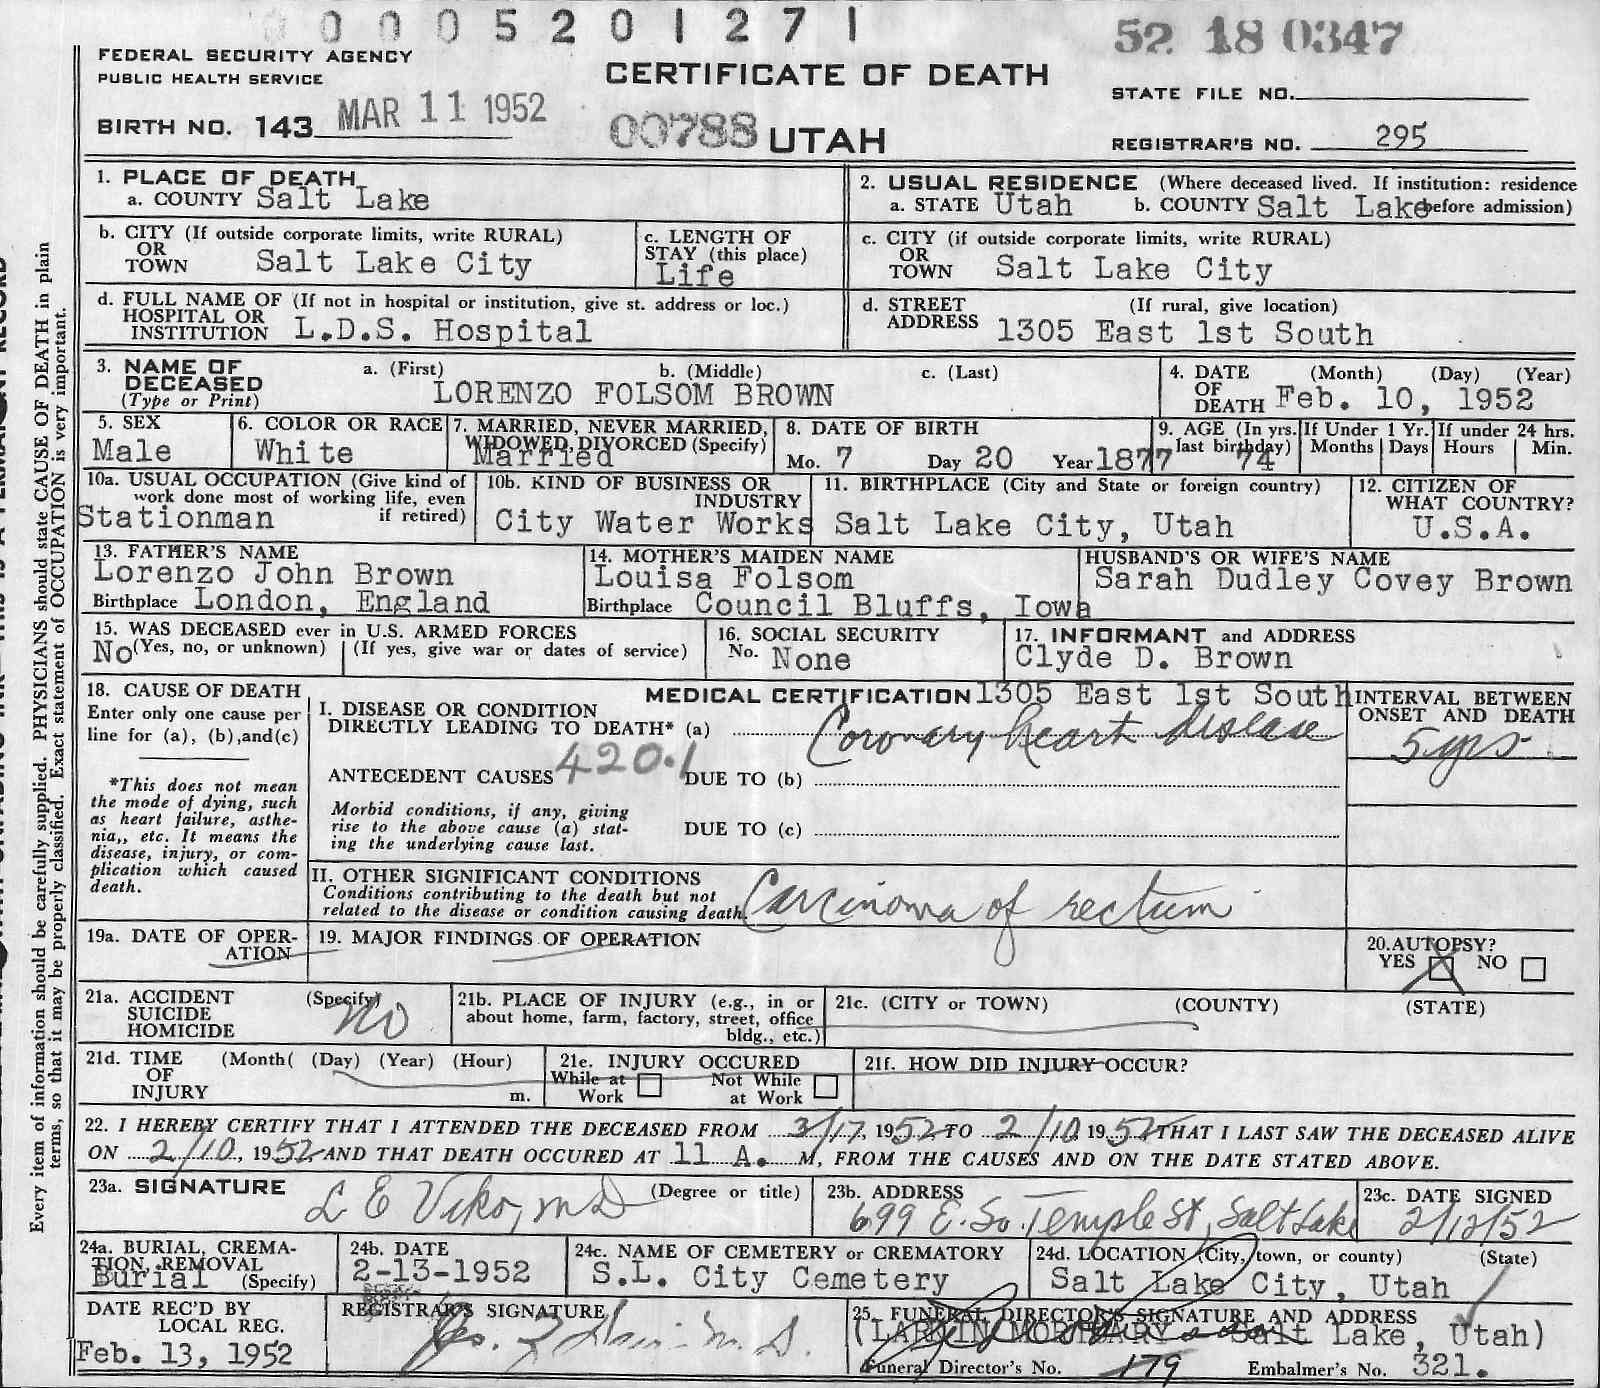 00005201271
52 18 0347
FEDERAL SECURITY AGENCY
PUBLIC HEALTH SERVICE
CERTIFICATE OF DEATH
STATE FILE NO.
BIRTH NO. 143 MAR 11 1952
00788 UTAH
REGISTRAR'S NO. 295
1. PLACE OF DEATH
a. COUNTY Salt Lake
2. USUAL RESIDENCE (Where deceased lived. If institution: residence
a. STATE Utah b. COUNTY Salt Lake before admission)
b. CITY (If outside corporate limits, write RURAL)
OR
TOWN Salt Lake City
c. LENGTH OF
STAY (this place)
Life
c. CITY (if outside corporate limits, write RURAL)
OR
TOWN Salt Lake City
d. FULL NAME OF (If not in hospital or institution, give st. address or loc.)
HOSPITAL OR
INSTITUTION L.D.S. Hospital
d. STREET (If rural, give location)
ADDRESS 1305 East 1st South
3. NAME OF
DECEASED
(Type or Print)
a. (First) b. (Middle) c. (Last)
LORENZO FOLSOM BROWN
4. DATE (Month) (Day) (Year)
OF
DEATH Feb. 10, 1952
5. SEX
Male
6. COLOR OR RACE
White
7. MARRIED, NEVER MARRIED,
WIDOWED, DIVORCED (Specify)
Married
8. DATE OF BIRTH
Mo. 7 Day 20 Year 1877
9. AGE (In yrs.
last birthday) 74
If Under 1 Yr.
Months Days
If under 24 hrs.
Hours Min.
10a. USUAL OCCUPATION (Give kind of
work done most of working life, even
if retired)
Stationman
10b. KIND OF BUSINESS OR
INDUSTRY
City Water Works
11. BIRTHPLACE (City and State or foreign country)
Salt Lake City, Utah
12. CITIZEN OF
WHAT COUNTRY?
U.S.A.
13. FATHER'S NAME
Lorenzo John Brown
Birthplace London, England
14. MOTHER'S MAIDEN NAME
Louisa Folsom
Birthplace Council Bluffs, Iowa
HUSBAND'S OR WIFE'S NAME
Sarah Dudley Covey Brown
15. WAS DECEASED ever in U.S. ARMED FORCES
No (Yes, no, or unknown) (If yes, give war or dates of service)
16. SOCIAL SECURITY
No. None
17. INFORMANT and ADDRESS
Clyde D. Brown
1305 East 1st South
18. CAUSE OF DEATH
Enter only one cause per
line for (a), (b),and(c)
*This does not mean
the mode of dying, such
as heart failure, asthe-
nia,, etc. It means the
disease, injury, or com-
plication which caused
death.
MEDICAL CERTIFICATION
I. DISEASE OR CONDITION
DIRECTLY LEADING TO DEATH* (a) Coronary heart disease
INTERVAL BETWEEN
ONSET AND DEATH
5 yrs
ANTECEDENT CAUSES 420.1 DUE TO (b)
Morbid conditions, if any, giving
rise to the above cause (a) stat-
ing the underlying cause last.
DUE TO (c)
II. OTHER SIGNIFICANT CONDITIONS
Conditions contributing to the death but not
related to the disease or condition causing death.
Carcinoma of rectum
19a. DATE OF OPER-
ATION
19. MAJOR FINDINGS OF OPERATION
20. AUTOPSY?
YES X NO
21a. ACCIDENT (Specify)
SUICIDE
HOMICIDE
No
21b. PLACE OF INJURY (e.g., in or
about home, farm, factory, street, office
bldg., etc.)
21c. (CITY or TOWN) (COUNTY) (STATE)
21d. TIME (Month( (Day) (Year) (Hour)
OF
INJURY m.
21e. INJURY OCCURED
While at
Work
Not While
at Work
21f. HOW DID INJURY OCCUR?
22. I HEREBY CERTIFY THAT I ATTENDED THE DECEASED FROM 3/17, 1952 TO 2/10, 1952 THAT I LAST SAW THE DECEASED ALIVE
ON 2/10, 1952 AND THAT DEATH OCCURED AT 11 A. M, FROM THE CAUSES AND ON THE DATE STATED ABOVE.
23a. SIGNATURE (Degree or title)
L E Viko, MD
23b. ADDRESS
699 E. So. Temple St, Salt Lake
23c. DATE SIGNED
2/12/52
24a. BURIAL, CREMA-
TION, REMOVAL
Burial (Specify)
24b. DATE
2-13-1952
24c. NAME OF CEMETERY or CREMATORY
S.L. City Cemetery
24d. LOCATION (City, town, or county) (State)
Salt Lake City, Utah
DATE REC'D BY
LOCAL REG.
Feb. 13, 1952
REGISTRAR'S SIGNATURE
M.D.
25. FUNERAL DIRECTOR'S SIGNATURE AND ADDRESS
(LARKIN MORTUARY Salt Lake, Utah)
Funeral Director's No. 179 Embalmer's No. 321.
Every item of information should be carefully supplied. PHYSICIANS should state CAUSE OF DEATH in plain
terms, so that it may be properly classified. Exact statement of OCCUPATION is very important.